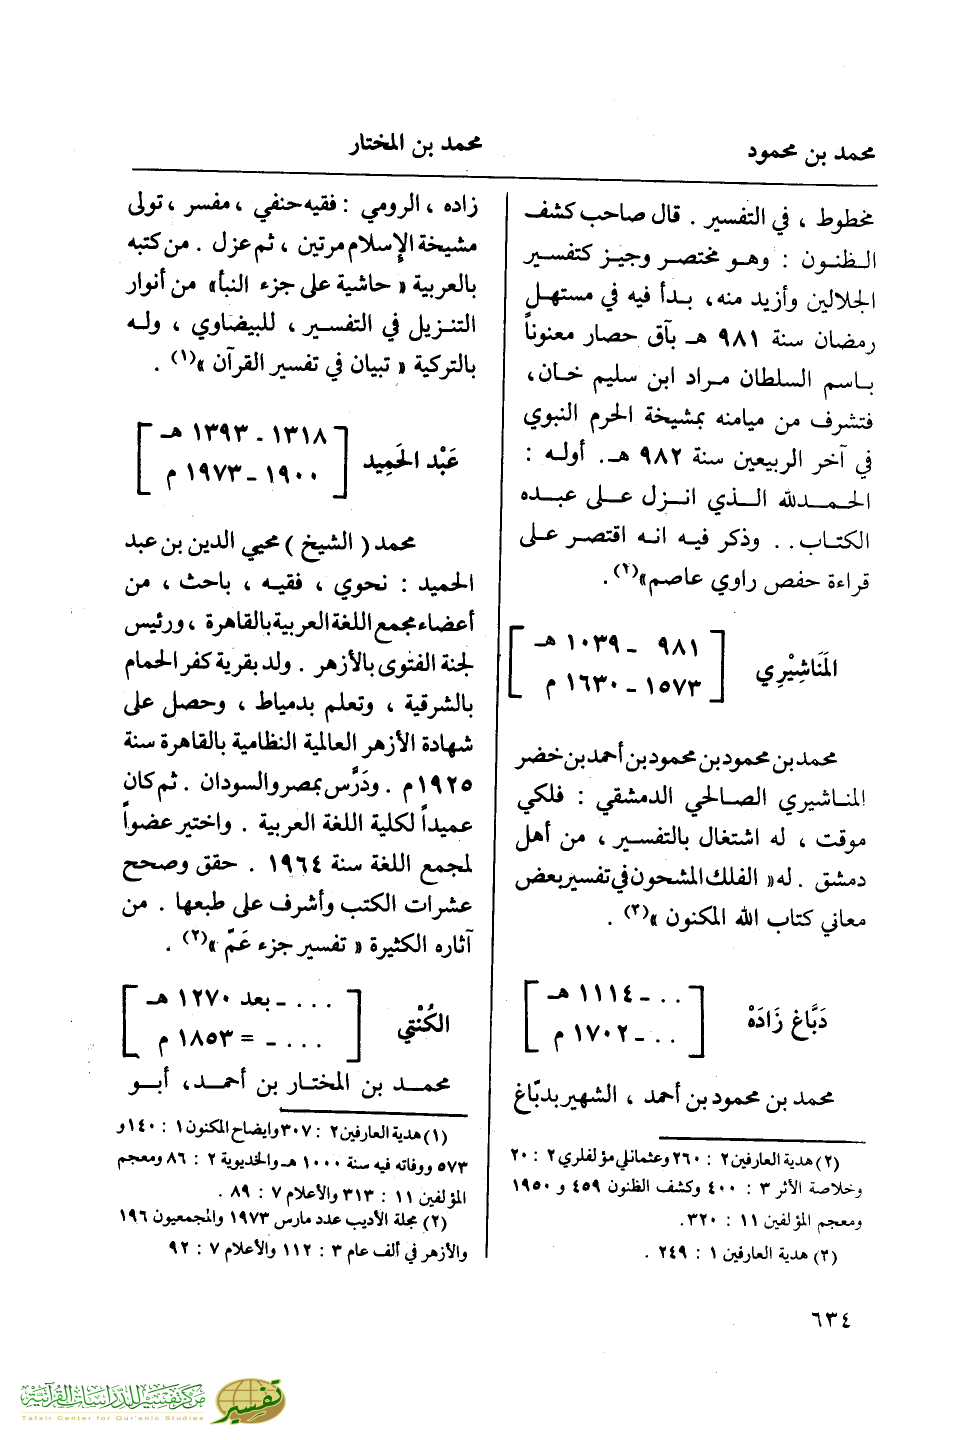 محمد بن محمود
محمد بن المختار
مخطوط ، في التفسير . قال صاحب كشف
الظنون : وهو مختصر وجيز كتفسير
الجلالين وأزيد منه، بدأ فيه في مستهل
رمضان سنة ٩٨١ هـ بآق حصار معنوناً
باسم السلطان مراد ابن سليم خان،
فتشرف من ميامنه بمشيخة الحرم النبوي
في آخر الربيعين سنة ٩٨٢ هـ. أوله :
الحمدلله الذي انزل على عبده
الكتاب.. وذكر فيه انه اقتصر على
قراءة حفص راوي عاصم»(٢).
المَنَاشِيْرِي
[٩٨١ - ١٠٣٩ هـ
١٥٧٣ - ١٦٣٠ م]
محمد بن محمود بن محمود بن أحمد بن خضر
المناشيري الصالحي الدمشقي : فلكي
موقت ، له اشتغال بالتفسير ، من أهل
دمشق . له « الفلك المشحون في تفسير بعض
معاني كتاب الله المكنون »(٣) .
دَبَّاغ زَادَهْ
[. . . - ١١١٤ هـ
. . . - ١٧٠٢ م]
محمد بن محمود بن أحمد ، الشهير بدبّاغ
(٢) هدية العارفين ٢ : ٢٦٠ وعثمانلي مؤلفلري ٢ : ٢٠
وخلاصة الأثر ٣ : ٤٠٠ وكشف الظنون ٤٥٩ و ١٩٥٠
ومعجم المؤلفين ١١ : ٣٢٠.
(٣) هدية العارفين ١ : ٢٤٩ .
زاده ، الرومي : فقيه حنفي ، مفسر ، تولى
مشيخة الإسلام مرتين ، ثم عزل . من كتبه
بالعربية « حاشية على جزء النبأ» من أنوار
التنزيل في التفسير ، للبيضاوي ، وله
بالتركية « تبيان في تفسير القرآن »(١) .
عَبْد الحَمِيد
[١٣١٨ - ١٣٩٣ هـ
١٩٠٠ - ١٩٧٣ م]
محمد ( الشيخ ) محيي الدين بن عبد
الحميد : نحوي ، فقيه ، باحث ، من
أعضاء مجمع اللغة العربية بالقاهرة ، ورئيس
لجنة الفتوى بالأزهر . ولد بقرية كفر الحمام
بالشرقية ، وتعلم بدمياط ، وحصل على
شهادة الأزهر العالمية النظامية بالقاهرة سنة
١٩٢٥م . ودَرَّس بمصر والسودان . ثم كان
عميداً لكلية اللغة العربية . واختير عضواً
لمجمع اللغة سنة ١٩٦٤ . حقق وصحح
عشرات الكتب وأشرف على طبعها . من
آثاره الكثيرة « تفسير جزء عَمّ »(٢) .
الكُنْتي
[. . . - بعد ١٢٧٠ هـ
. . . - = ١٨٥٣ م]
محمد بن المختار بن أحمد، أبو
(١) هدية العارفين ٢ : ٣٠٧ وايضاح المكنون ١ : ١٤٠ و
٥٧٣ ووفاته فيه سنة ١٠٠٠ هـ والخديوية ٢ : ٨٦ ومعجم
المؤلفين ١١ : ٣١٣ والأعلام ٧ : ٨٩ .
(٢) مجلة الأديب عدد مارس ١٩٧٣ والمجمعيون ١٩٦
والأزهر في ألف عام ٣ : ١١٢ والأعلام ٧ : ٩٢
٦٣٤
مركز تفسير للدراسات القرآنية
Tafsir Center for Qur'anic Studies
تفسير